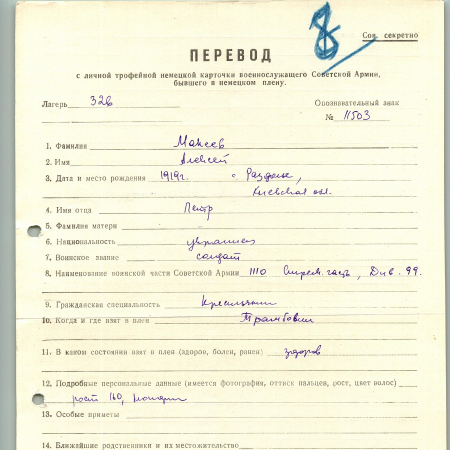 8
Сов. секретно
ПЕРЕВОД
с личной трофейной немецкой карточки военнослужащего Советской Армии,
бывшего в немецком плену.
Лагерь 326 Опознавательный знак
№ 11503
1. Фамилия Макеев
2. Имя Алексей
3. Дата и место рождения 1919г. с Раздолье,
Киевская обл.
4. Имя отца Петр
5. Фамилия матери
6. Национальность украинец
7. Воинское звание солдат
8. Наименование воинской части Советской Армии 1110 Стрелк. часть, Див. 99.
9. Гражданская специальность Крестьянин
10. Когда и где взят в плен
11. В каком состоянии взят в плен (здоров, болен, ранен) здоров
12. Подробные персональные данные (имеется фотография, оттиск пальцев, рост, цвет волос)
рост 160,
13. Особые приметы
14. Ближайшие родственники и их местожительство